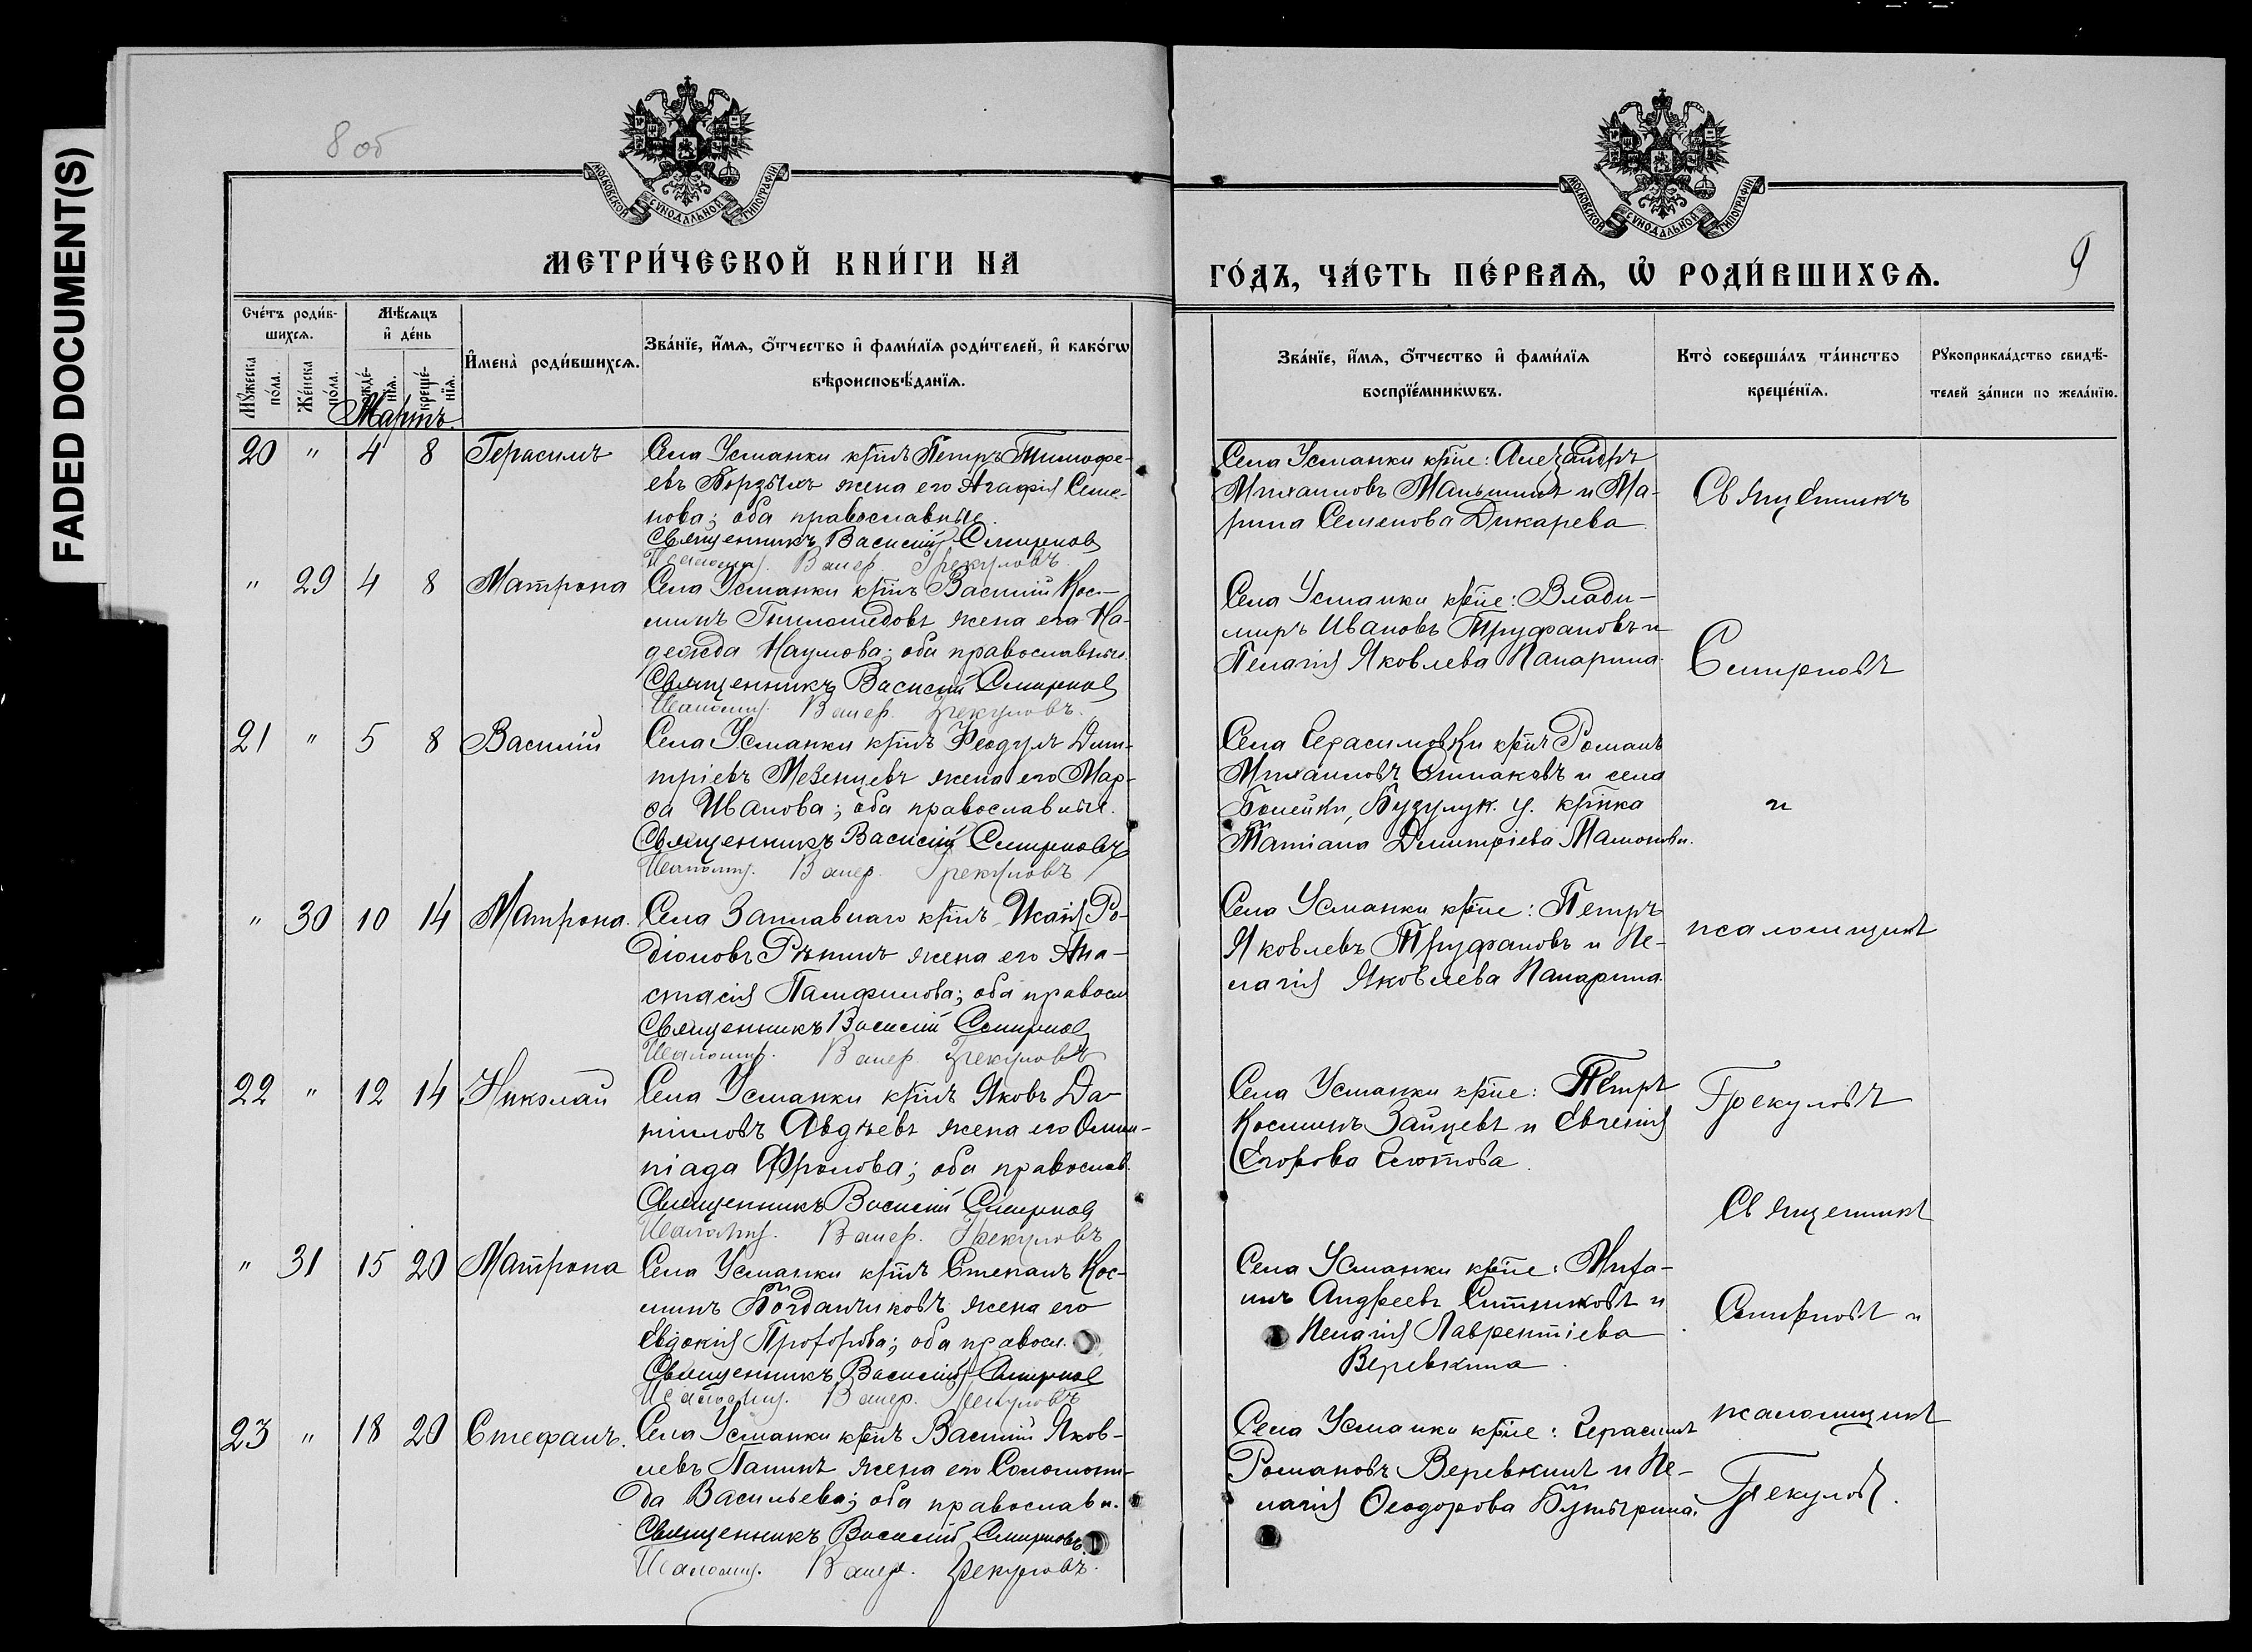 FADED DOCUMENT(S)
8 об
МОСКОВСКОЙ СѴНОДАЛЬНОЙ ТИПОГРАФІИ
МЕТРИ́ЧЕСКОЙ КНИ́ГИ НА
Сче́тъ роди́в-
шихсѧ.
Мѣ́сѧцъ
и҆ де́нь
Мꙋ́жеска
по́ла.
Же́нска
по́ла.
креще́-
нїѧ.
И҆мена̀ роди́вшихсѧ.
Зва́нїе, и҆́мѧ, о҆́тчество и҆ фами́лїѧ роди́телей, и҆ како́гѡ
вѣроисповѣ́данїѧ.
Мартъ.
20 " 4 8 Герасимъ
Села Усманки крнъ Петръ Тимофе-
евъ Борзыхъ жена его Агафія Семе-
нова; оба православные.
Священникъ Василій Смирновъ
Псаломщ. Валер. Грекуловъ.
" 29 4 8 Матрона
Села Усманки крнъ Василій Кос-
минъ жена его На-
дежда Наумова; оба православные.
Священникъ Василій Смирновъ
Псаломщ. Валер. Грекуловъ.
21 " 5 8 Василій
Села Усманки крнъ Феодулъ Дим-
тріевъ Мезенцевъ жена его Мар-
ѳа Иванова; оба православные.
Священникъ Василій Смирновъ
Псаломщ. Валер. Грекуловъ
" 30 10 14 Матрона.
Села Заплавнаго крнъ Исаія Ро-
діоновъ Рѣпинъ жена его Ана-
стасія Памфилова; оба правосл
Священникъ Василій Смирновъ
Псаломщ. Валер. Грекуловъ
22 " 12 14 Николай
Села Усманки крнъ Яковъ Да-
ниловъ Авдѣевъ жена его Олим-
піада Фролова; оба православ.
Священникъ Василій Смирновъ
Псаломщ. Валер. Грекуловъ
" 31 15 20 Матрона
Села Усманки крнъ Степанъ Кос-
минъ Богданчиковъ жена его
Евдокія Прохорова; оба правосл.
Священникъ Василій Смирновъ
Псаломщ. Валер. Грекуловъ
23 " 18 20 Стефанъ.
Села Усманки крнъ Василій Яков-
левъ Папинъ жена его Соломони-
да Васильева; оба православн.
Священникъ Василій Смирновъ.
Псаломщ. Валер. Грекуловъ.
МОСКОВСКОЙ СѴНОДАЛЬНОЙ ТИПОГРАФІИ
9
ГО́ДЪ, ЧА́СТЬ ПЕ́РВАѦ, Ѡ҆ РОДИ́ВШИХСѦ.
Зва́нїе, и҆́мѧ, о҆́тчество и҆ фами́лїѧ
воспрїе́мникѡвъ.
Кто̀ соверша́лъ та́инство
креще́нїѧ.
Рꙋкоприкла́дство свидѣ́-
телей за́писи по жела́нїю.
Села Усманки крне: Александръ
Михаиловъ Маньшинъ и Ма-
рина Семенова Дикарева
Священникъ
Села Усманки крне: Влади-
миръ Ивановъ Труфановъ и
Пелагія Яковлева Папарина.
Смирновъ
Села Герасимовки крнъ Романъ
Михаиловъ и села
Бузулук. у. крнка
Татіана Димитріева
и
Села Усманки крне: Петръ
Яковлевъ Труфановъ и Пе-
лагія Яковлева Папарина.
псаломщикъ
Села Усманки крне: Петръ
Косминъ Зайцевъ и Евгенія
Егорова
Грекуловъ
Священникъ
Села Усманки крне: Миха-
илъ Андреевъ Ситниковъ и
Пелагія Лаврентіева
Веревкина.
Смирновъ и
Села Усманки крне: Герасимъ
Романовъ Веревкинъ и Пе-
лагія Ѳеодорова
псаломщикъ
Грекуловъ.